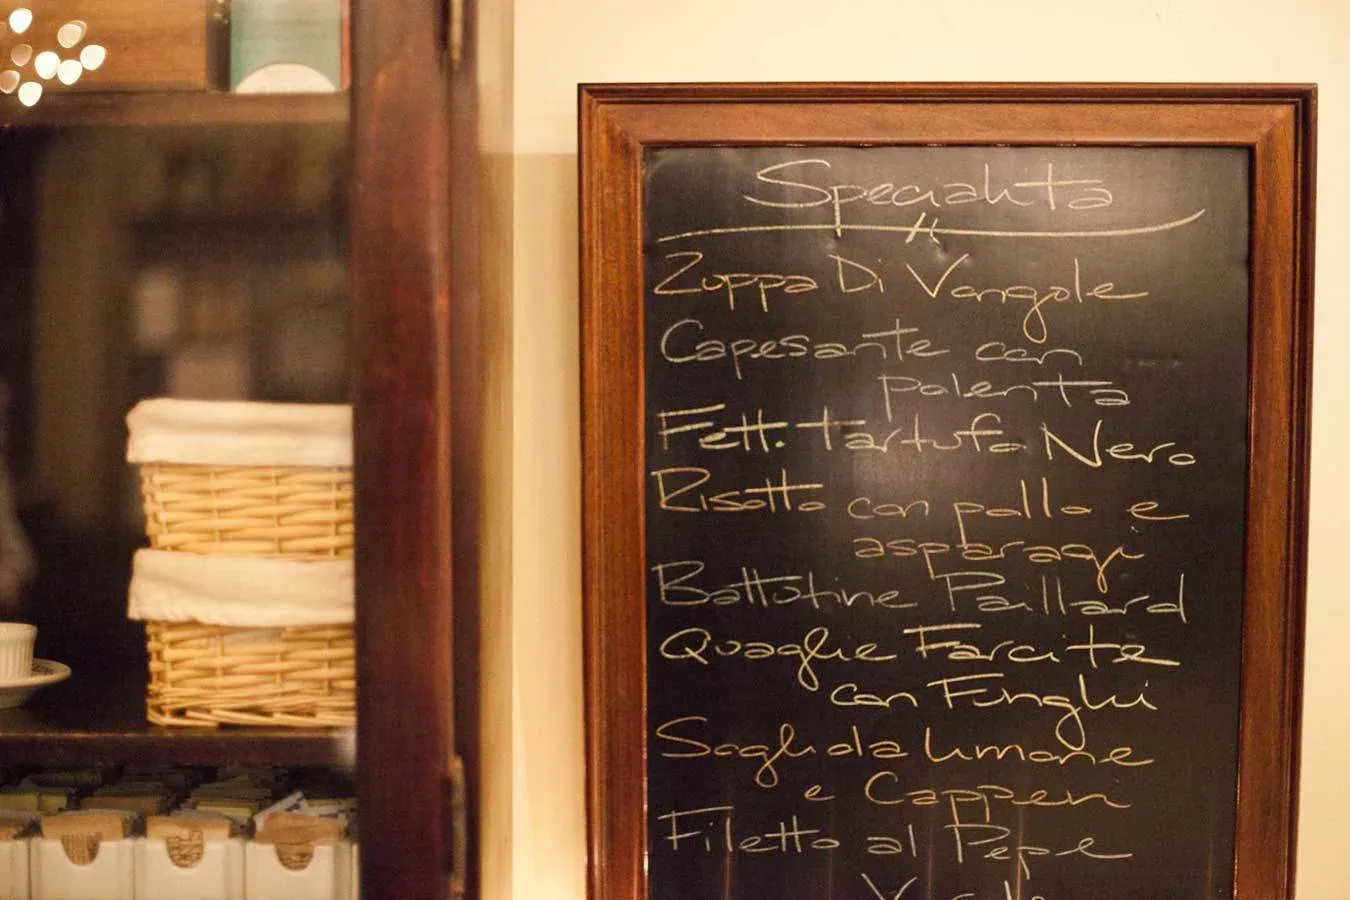 Specialita
Zuppa Di Vongole
Capesante con
polenta
Fett. tartufo Nero
Risotto con pollo e
asparagi
Battotine Paillard
Quaglie Farcite
con Funghi
Sogliola limone
e Capperi
Filetto al Pepe